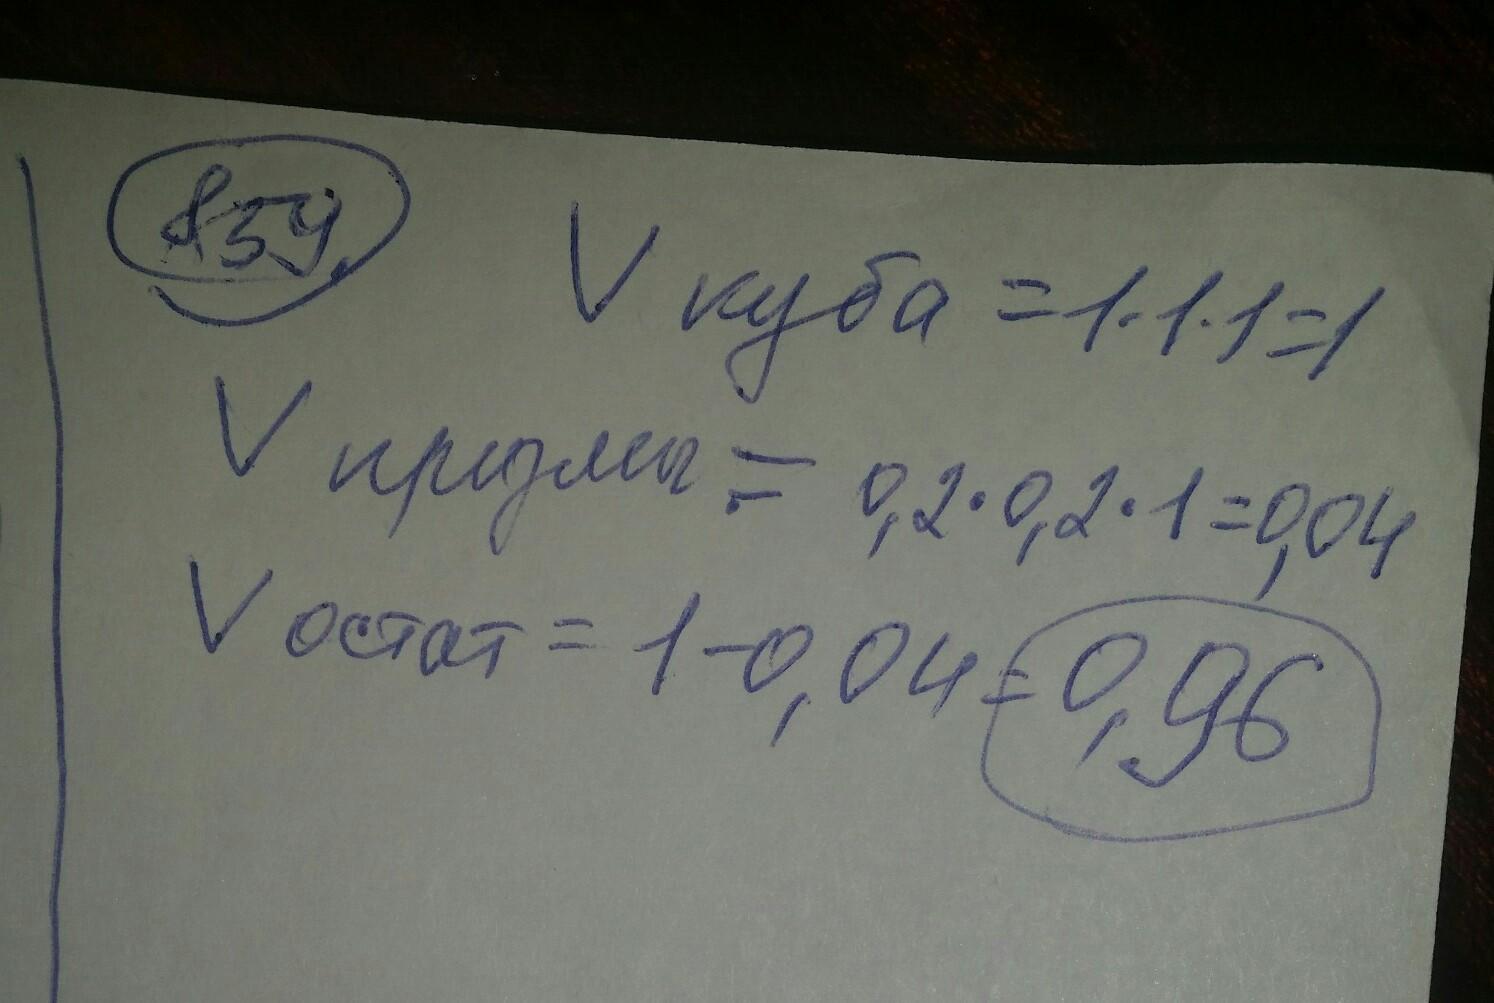 859
V куба = 1·1·1=1
V призмы = 0,2·0,2·1=0,04
V остат = 1-0,04=0,96